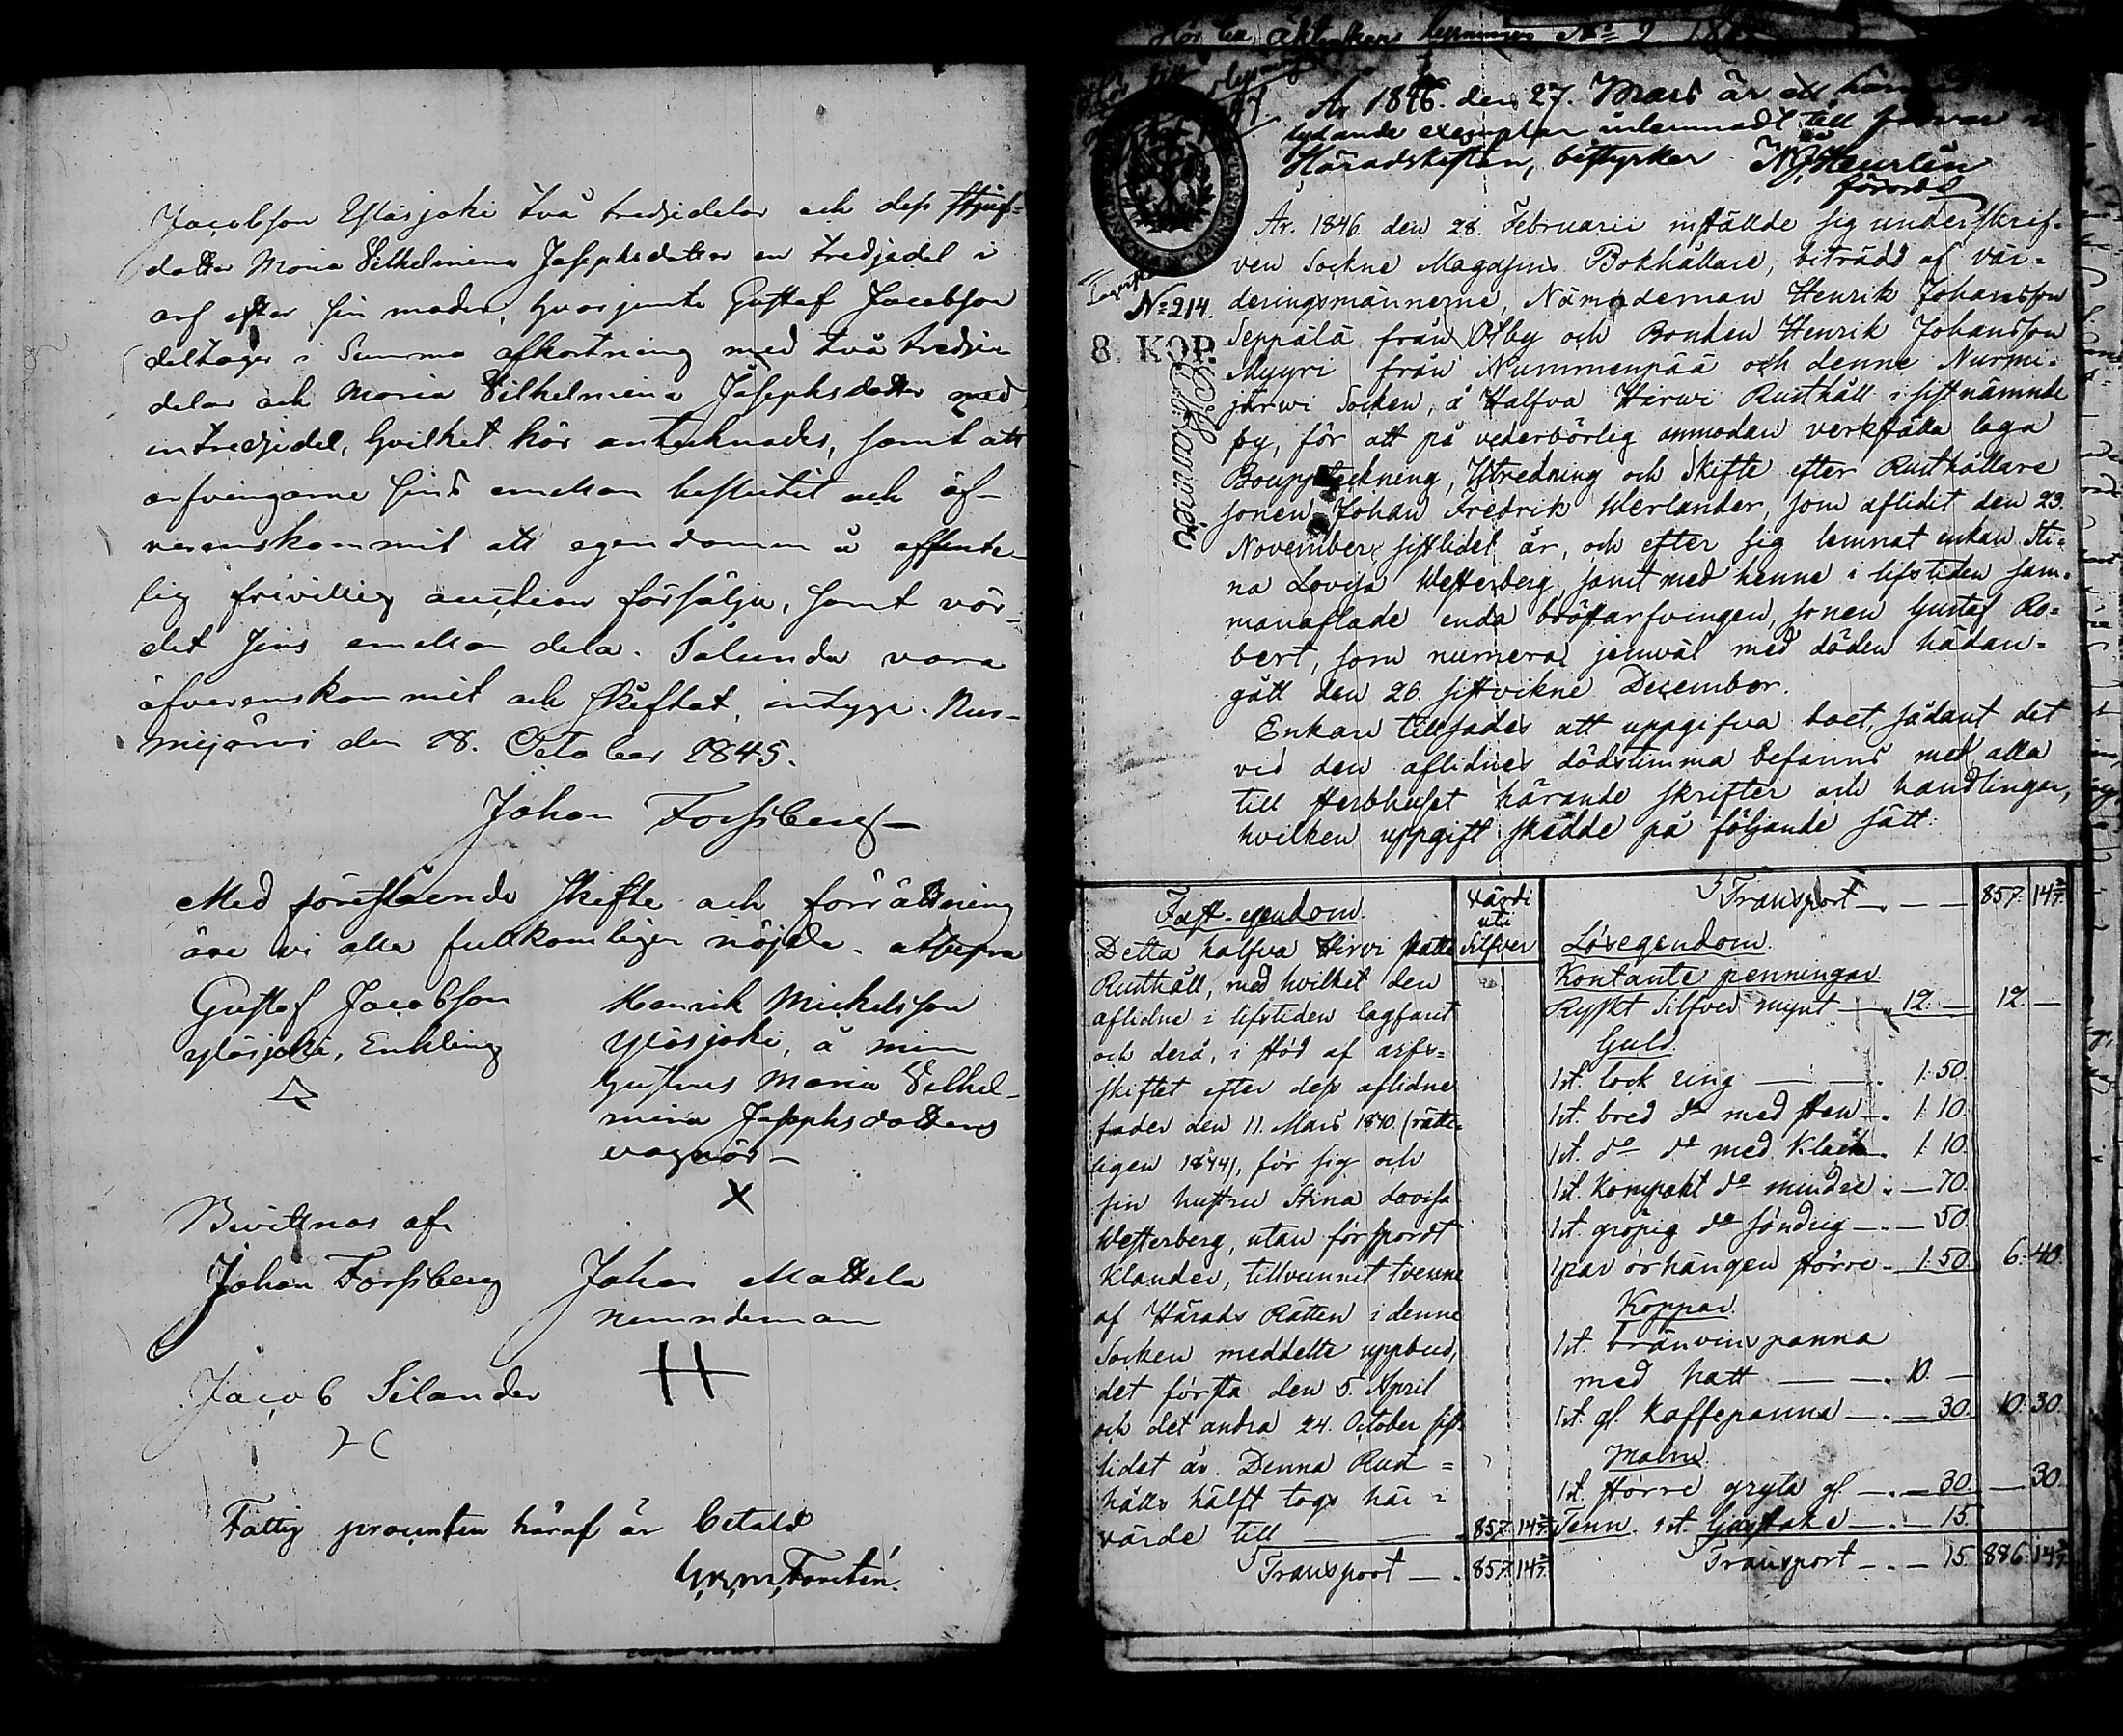 Jacobsson Ylösjoki två tredjedelar och dess styuf-
dotter Maria Vilhelmina Josephsdotter en tredjedel i
arf efter sin moder, hvarjemte Gustaf Jacobsson
deltager i Summa afkortning med två tredje-
delar och Maria Vilhelmina Josephsdotter med
en tredjedel, hvilket här antecknades, samt att
arfvingarne sins emellan beslutit och öf-
verenskommit att egendomen å offente-
lig frivillig auction försälja, samt vär-
det sins emellan dela. Sålunda vara
öfverenskommit och skiftat, intyga. Nur-
mijärvi den 28. October 1845.
Johan Forssberg
Med föreståendo skifte och förrättning
äre vi alla fullkomligen nöjde. at supra
Gustaf Jacobsson
Ylösjoki, Enkling
Henrik Mickelsson
Ylösjoki, å min
hustrus Maria Vilhel-
mina Josephsdotters
vägnär
X
Bevittnas af
Johan Forssberg
Johan Mattela
nemndeman
Jacob Silander
Fattig procenten häraf är betald
Forstén.
Hör till N:o 2
År 1846. den 27. Mars är ett
lydande exemplar inlemnadt till förvar i
Häradskistan, bestyrker
År. 1846 den 28. Februarii inställde sig underskrif-
ven Sockne Magasins Bokhållare, biträdd af vär-
N:o 214. deringsmännerne, Nämndeman Henrik Johansson
8. KOP. Seppälä från Olby och Bonden Henrik Johansson
Myyri från Nummenpää och denne Nurmi-
järwi Socken, å Halfva Hirwi Rusthåll i sistnämnde
by, för att på vederbörlig anmodan verkställa laga
Bouppteckning, Utredning och Skifte efter Rusthållare
sonen Johan Fredrik Werlander, som aflidit den 23.
November sistlidet år, och efter sig lemnat enkan Sti-
na Lovisa Westerberg, samt med henne i lifstiden sam-
manaflade enda bröstarfvingen, sonen Gustaf Ro-
bert, som numera jemväl med döden hädan-
gått den 26. sistvikne December.
Enkan tillsades att uppgifva boet, sådant det
vid den aflidnes dödstimma befanns med alla
till sterbhuset hörande skrifter och handlingar,
hvilken uppgift skedde på följande sätt:
Fast-egendom.
Värdi
uti
Silfver
Detta halfva Hirvi skatte
Rusthåll, med hvilket den
aflidne i lifstiden lagfarit
och derå, i stöd af arfs-
skiftet efter dess aflidne
fader den 11. Mars 1840 (rätte-
ligen 1844), för sig och
sin hustru Stina Lovisa
Westerberg, utan försport
Klander, tillvunnit tvenne
af Härads Rätten i denne
Socken meddelte uppbud,
det första den 5. April
och det andra 24. October sist-
lidet år. Denna Rust=
hålls hälft togs här i
värde till — — 857. 14 2/7.
Transport — . 857. 14 2/7.
Transport — . — — 857. 14 2/7.
Lösegendom.
Kontante penningar.
Ryskt Silfver mynt — " 12. — 12. —
Guld
1 st. lock ring — — . 1. 50.
1 st. bred d:o med sten — . 1. 10.
1 st. d:o d:o med Klack . 1. 10.
1 st. kompakt d:o mindre . — 70.
1 st. gropig d:o söndrig — . — 50.
1 par örhängen större . 1. 50. 6. 40.
Koppar.
1 st. bränvins panna
med hatt — — . 10. —
1 st. gl. Kaffepanna — . — 30. 10. 30.
Malm.
1 st. större gryta gl — . — 30. — 30.
Tenn. 1 st. ljusstake — . — 15.
Transport — . — 15. 886. 14 2/7.